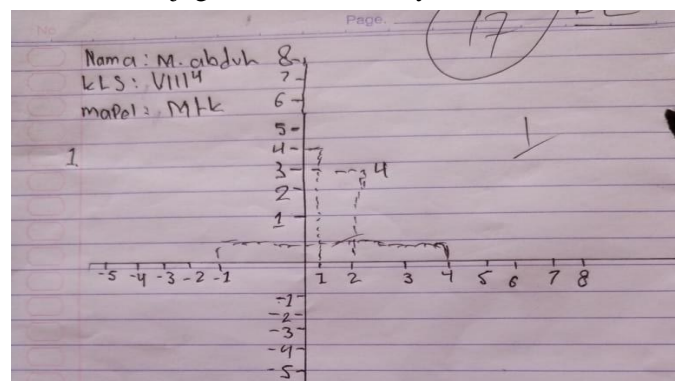 No
Page.
17
Nama : M. abduh
kLS : VIII4
mapel : MtK
1
8
7
6
5
4
3 4
2
1
-5 -4 -3 -2 -1 1 2 3 4 5 6 7 8
-1
-2
-3
-4
-5
1